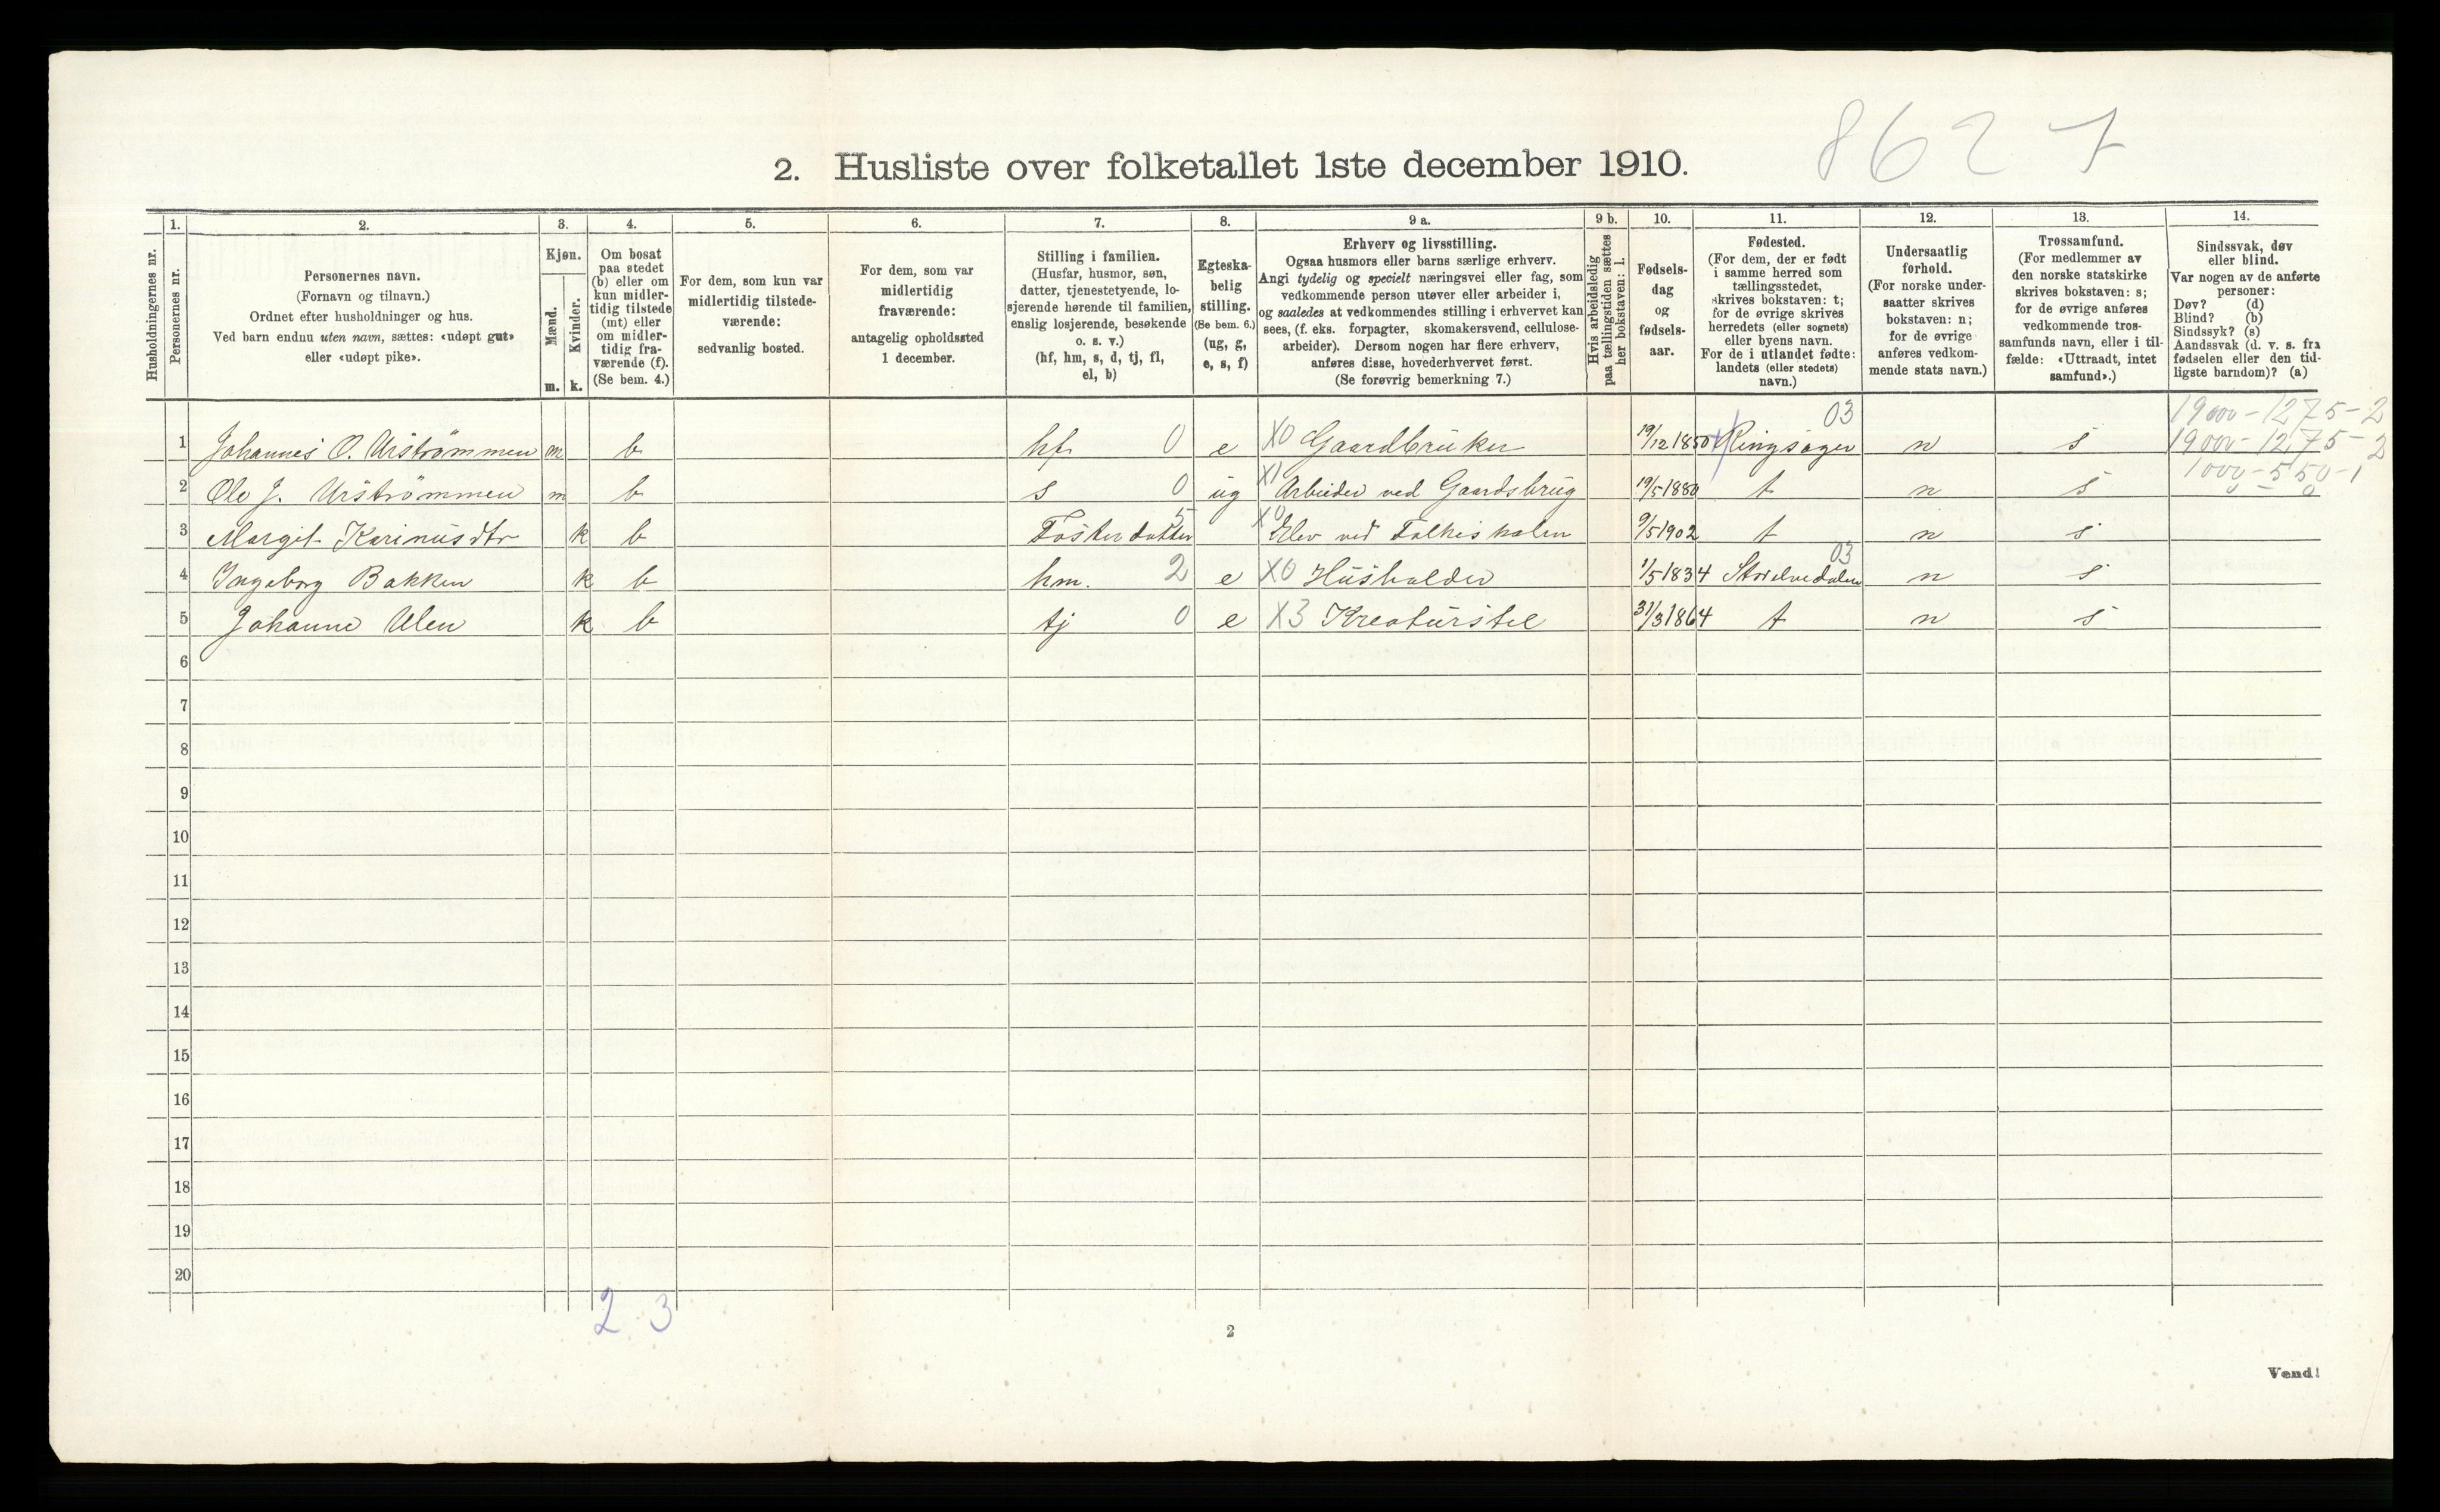 8627
2. Husliste over folketallet 1ste december 1910.
Husholdningernes nr.
1.
Personernes nr.
2.
Personernes navn.
(Fornavn og tilnavn.)
Ordnet efter husholdninger og hus.
Ved barn endnu uten navn, sættes: «udøpt gut»
eller «udøpt pike».
3.
Kjøn.
Mænd.
Kvinder.
m. k.
4.
Om bosat
paa stedet
(b) eller om
kun midler-
tidig tilstede
(mt) eller
om midler-
tidig fra-
værende (f).
(Se bem. 4.)
5.
For dem, som kun var
midlertidig tilstede-
værende:
sedvanlig bosted.
6.
For dem, som var
midlertidig
fraværende:
antagelig opholdssted
1 december.
7.
Stilling i familien.
(Husfar, husmor, søn,
datter, tjenestetyende, lo-
sjerende hørende til familien,
enslig losjerende, besøkende
o. s. v.)
(hf, hm, s, d, tj, fl,
el, b)
8.
Egteska-
belig
stilling.
(Se bem. 6.)
(ug, g,
e, s, f)
9 a.
Erhverv og livsstilling.
Ogsaa husmors eller barns særlige erhverv.
Angi tydelig og specielt næringsvei eller fag, som
vedkommende person utøver eller arbeider i,
og saaledes at vedkommendes stilling i erhvervet kan
sees, (f. eks. forpagter, skomakersvend, cellulose-
arbeider). Dersom nogen har flere erhverv,
anføres disse, hovederhvervet først.
(Se forøvrig bemerkning 7.)
9 b.
Hvis arbeidsledig
paa tællingstiden sættes
her bokstaven: l.
10.
Fødsels-
dag
og
fødsels-
aar.
11.
Fødested.
(For dem, der er født
i samme herred som
tællingsstedet,
skrives bokstaven: t;
for de øvrige skrives
herredets (eller sognets)
eller byens navn.
For de i utlandet fødte:
landets (eller stedets)
navn.)
12.
Undersaatlig
forhold.
(For norske under-
saatter skrives
bokstaven: n;
for de øvrige
anføres vedkom-
mende stats navn.)
13.
Trossamfund.
(For medlemmer av
den norske statskirke
skrives bokstaven: s;
for de øvrige anføres
vedkommende tros-
samfunds navn, eller i til-
fælde: «Uttraadt, intet
samfund».)
14.
Sindssvak, døv
eller blind.
Var nogen av de anførte
personer:
Døv? (d)
Blind? (b)
Sindssyk? (s)
Aandssvak (d. v. s. fra
fødselen eller den tid-
ligste barndom)? (a)
03 19000-1275-2
1 Johannes O. Urströmmen m b hf 0 e X0 Gaardbruker 19/12 1850 Ringsager n s 19000-1275-2
1000-550-1
2 Ole J. Urströmmen m b s 0 ug X1 Arbeider ved Gaardsbrug 19/5 1880 t n s
3 Margit Karinusdtr k b Fosterdatter 5 X0 Elev ved Folkeskolen 9/5 1902 t n s
03
4 Ingeborg Bakken k b hm. 2 e X0 Husholder 1/5 1834 Storelvedalen n s
5 Johanne Ulen k b tj 0 e X3 Kreaturstel 31/3 1864 t n s
6
7
8
9
10
11
12
13
14
15
16
17
18
19
20
2 3
2
Vend!